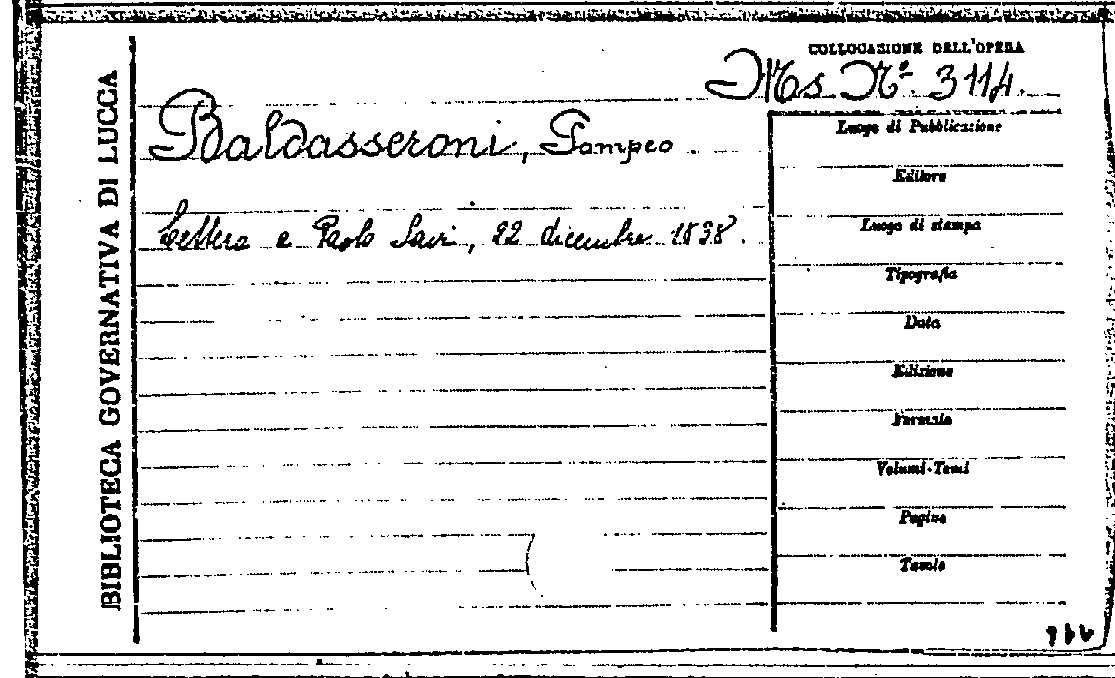 BIBLIOTECA GOVERNATIVA DI LUCCA
COLLOCAZIONE DELL'OPERA
Ms. Nº. 3114.
Baldasseroni, Pompeo.
Lettera a Paolo Savi, 22 dicembre 1838.
Luogo di Pubblicazione
Editore
Luogo di stampa
Tipografia
Data
Edizione
Formato
Volumi-Tomi
Pagine
Tavole